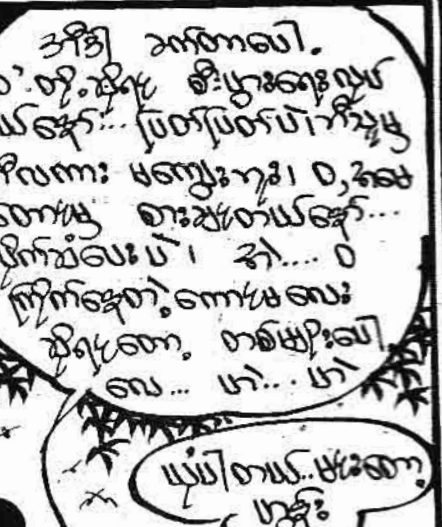 အဲဒါ ခက်တာပေါ့.
တို့ဆိုရင် စီးပွားရေးလုပ်
ယ်နော်... ပြတ်ပြတ်ပဲ၊ ဘယ်သူမှ
လကား မကျွေးဘူး၊ ဝ,အမေ
တောင်မှ စားချင်တယ်နော်...
ိုက်ဆံပေး ပဲ ၊ အဲ.... ဝ
ကြိုက်နေတဲ့ ကောင်မ လေး
ဆိုရင်တော့ တစ်မျိုးပေါ့
လေ... ဟဲ... ဟဲ
ယုံပါတယ်..မင်းတော့
ဟွန်း